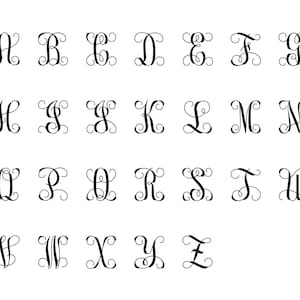 A B C D E F G
H I J K L M N
Q P O R S T U
V W X Y Z